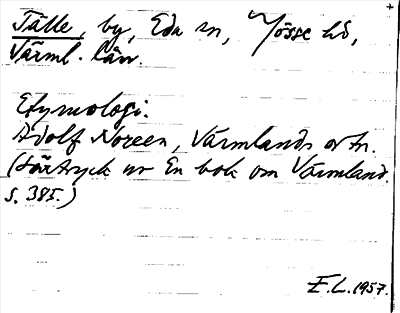 Tälle, by, Eda sn, Jösse hd,
Värml. län.
Etymologi.
Adolf Noreen, Värmlands ortn.
(Särtryck ur En bok om Värmland.
s. 385.)
E.L. 1957.